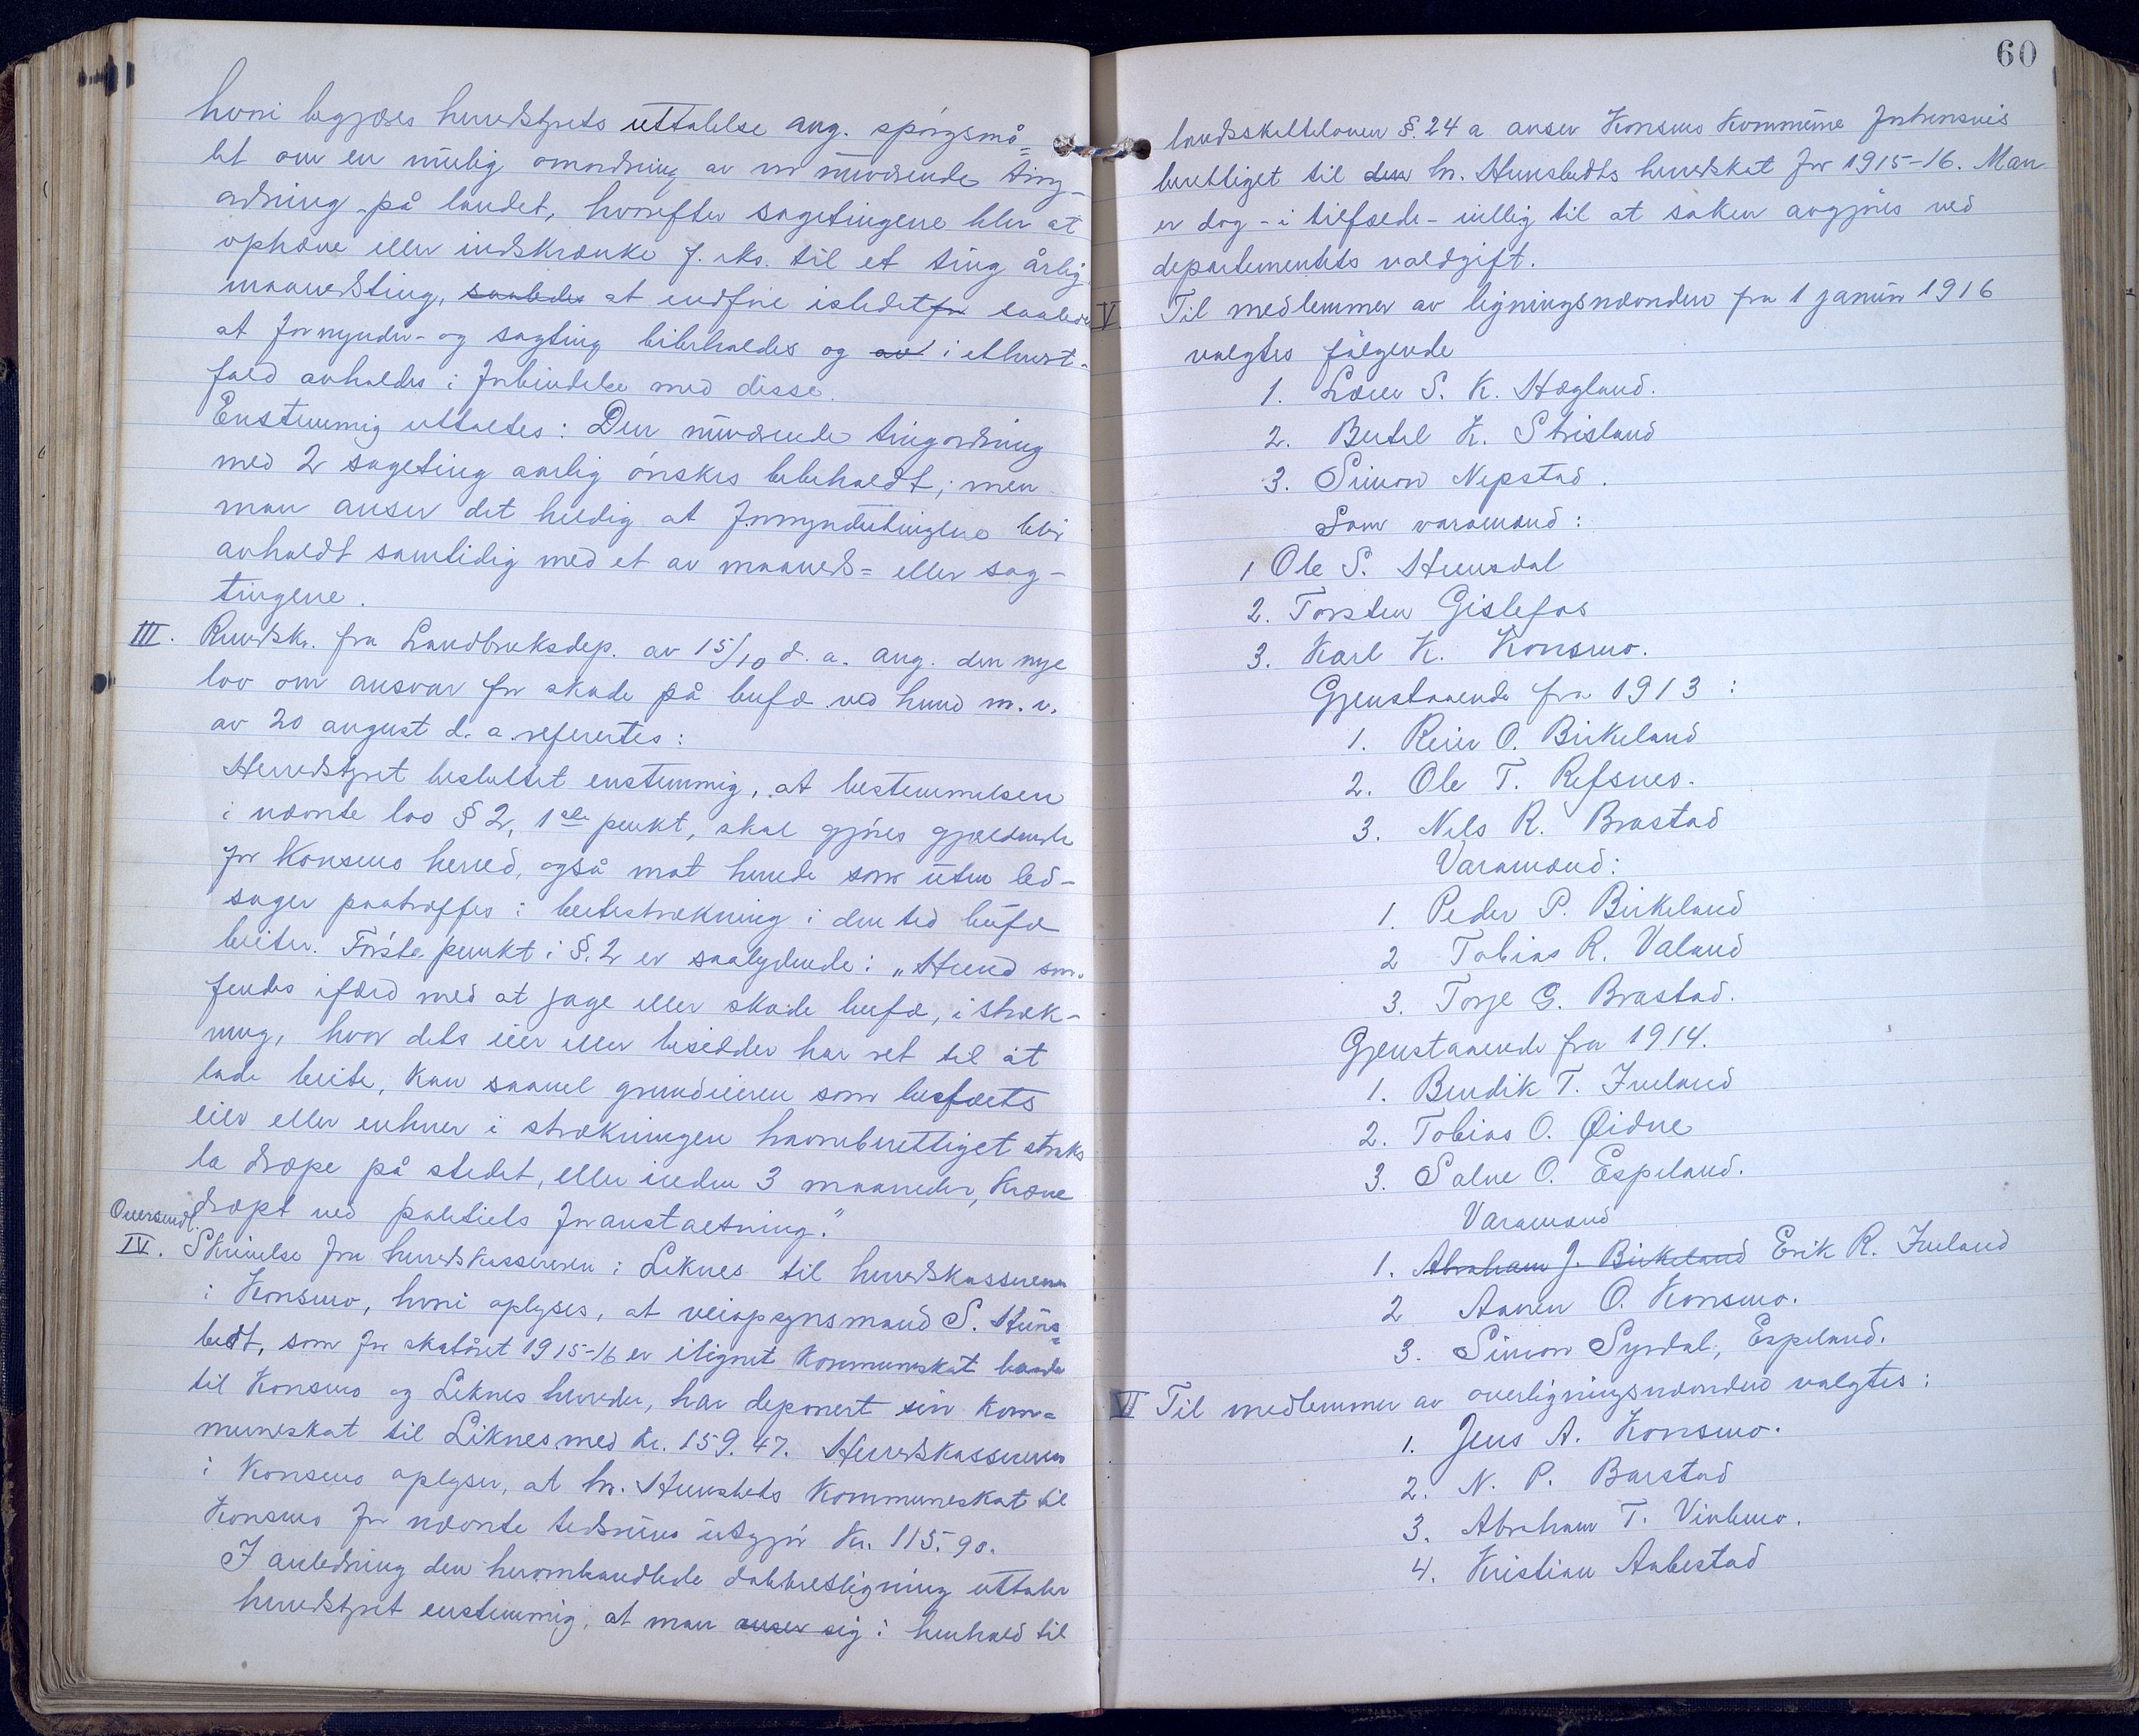 hvori begjæres herredstyrets uttalelse ang. spörgsmå=
let om en mulig omordning av vor nuværende ting-
ordning på landet, hvorefter sagetingene blir at
ophæve eller indskrænke f. eks. til et ting årlig
maanedsting, saaledes at indföre istedetfor saaledes
at formynder- og sagting bibeholdes og av i ethvert-
fald avholdes i forbindelse med disse.
Enstemmig uttaltes: Den nuværende tingordning
med 2 sageting aarlig önskes bibeholdt; men
man anser det heldig at formyndertingene blir
avholdt samtidig med et av maaneds= eller sag-
tingene.
III. Rundsk. fra Landbruksdep. av 15/10 d. a. ang. den nye
lov om ansvar for skade på bufæ ved hund m. v.
av 20 august d. a. refertes:
Herredstyret besluttet enstemmig, at bestemmelsen
i nævnte lov § 2, 1ste punkt, skal gjöres gjældende
for Konsmo herred, også mot hunde som uten led-
sager paatræffes i beitestrækning i den tid bufæ
beiter. Förste punkt i §. 2 er saalydende: „Hund som
findes ifærd med at jage eller skade bufæ, i stræk-
ning, hvor dets eier eller besidder har ret til åt
lade beite, kan saavel grundeieren som bufæets
eier eller enhver i strækningen havneberettiget straks
la dræpe på stedet, eller inden 3 maaneder, kræve
dræpt ved politiets foranstaltning."
Oversendt.
IV. Skrivelse fra herredskassereren i Liknes til herredskassereren
i Konsmo, hvori oplyses, at veiopsynsmand S. Huns=
bedt, som for skatåret 1915-16 er ilignet kommuneskat baade
til Konsmo og Liknes herreder, har deponert sin kom=
muneskat til Liknes med kr. 159.47. Herredskassereren
i Konsmo oplyser, at hr. Hunsbedts kommuneskat til
Konsmo for nævnte tidsrum utgjör Kr. 115.90.
I anledning den heromhandlede dobbeltligning uttaler
herredstyret enstemmig, at man anser sig i henhold til
60
landsskatteloven §. 24 a anser Konsmo Kommune fortrinsvis
berettiget til den hr. Hunsbedts herredskat for 1915-16. Man
er dog - i tilfælde - villig til at saken avgjöres ved
departementets voldgift.
V. Til medlemmer av ligningsnævnden fra 1 januar 1916
valgtes fölgende
1. Lærer S. K. Hægland.
2. Bertel K. Strisland
3. Simon Nepstad.
Som varamænd:
1 Ole S. Hunsdal
2. Torsten Gislefos
3. Karl K. Konsmo.
Gjenstaaende fra 1913:
1. Reier O. Birkeland
2. Ole T. Refsnes.
3. Nils R. Brastad
Varamænd:
1. Peder P. Birkeland
2 Tobias R. Valand
3. Torje G. Brastad.
Gjenstaaende fra 1914.
1. Bendik T. Iveland
2. Tobias O. Øidne
3. Salve O. Espeland.
Varamænd
1. Abraham J. Birkeland Erik R. Iveland
2 Aanen O. Konsmo.
3. Simon Syrdal, Espeland.
VI Til medlemmer av overligningsnævnden valgtes:
1. Jens A. Konsmo.
2. N. P. Barstad
3. Abraham T. Viblemo.
4. Kristian Aabestad